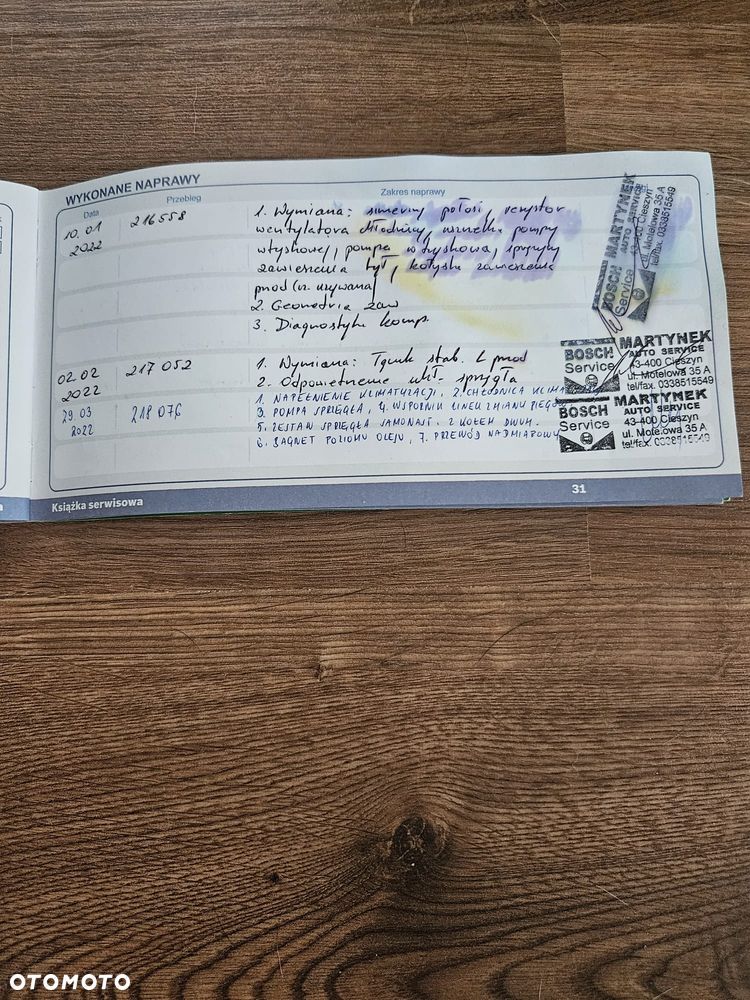 WYKONANE NAPRAWY
Data Przebieg Zakres naprawy
10.01 2022 216558 1. Wymiana: simering półosi, rezystor
wentylatora chłodnicy, uszczelka pompy
wtryskowej, pompa wtryskowa, sprężyny
zawieszenia tył, kołyska zawieszenia
przód (cz. używana)
2. Geometria zaw
3. Diagnostyka komp.
BOSCH Service MARTYNEK
AUTO SERVICE
43-400 Cieszyn
ul. Motelowa 35 A
tel/fax. 0338515549
02.02 2022 217 052 1. Wymiana: Łącznik stab. L przód
2. Odpowietrzenie ukł. sprzęgła
BOSCH Service MARTYNEK
AUTO SERVICE
43-400 Cieszyn
ul. Motelowa 35 A
tel/fax. 0338515549
29.03 2022 218 076 1. NAPEŁNIENIE KLIMATYZACJI, 2. CHŁODNICA KLIMA
3. POMPA SPRZĘGŁA, 4. WSPORNIK LINEK ZMIANY BIEGÓW
5. ZESTAW SPRZĘGŁA SAMONAST. Z KOŁEM DWUM.
6. BAGNET POZIOMU OLEJU, 7. PRZEWÓD NADMIAROWY
BOSCH Service MARTYNEK
AUTO SERVICE
43-400 Cieszyn
ul. Motelowa 35 A
tel/fax. 0338515549
Książka serwisowa 31
OTOMOTO